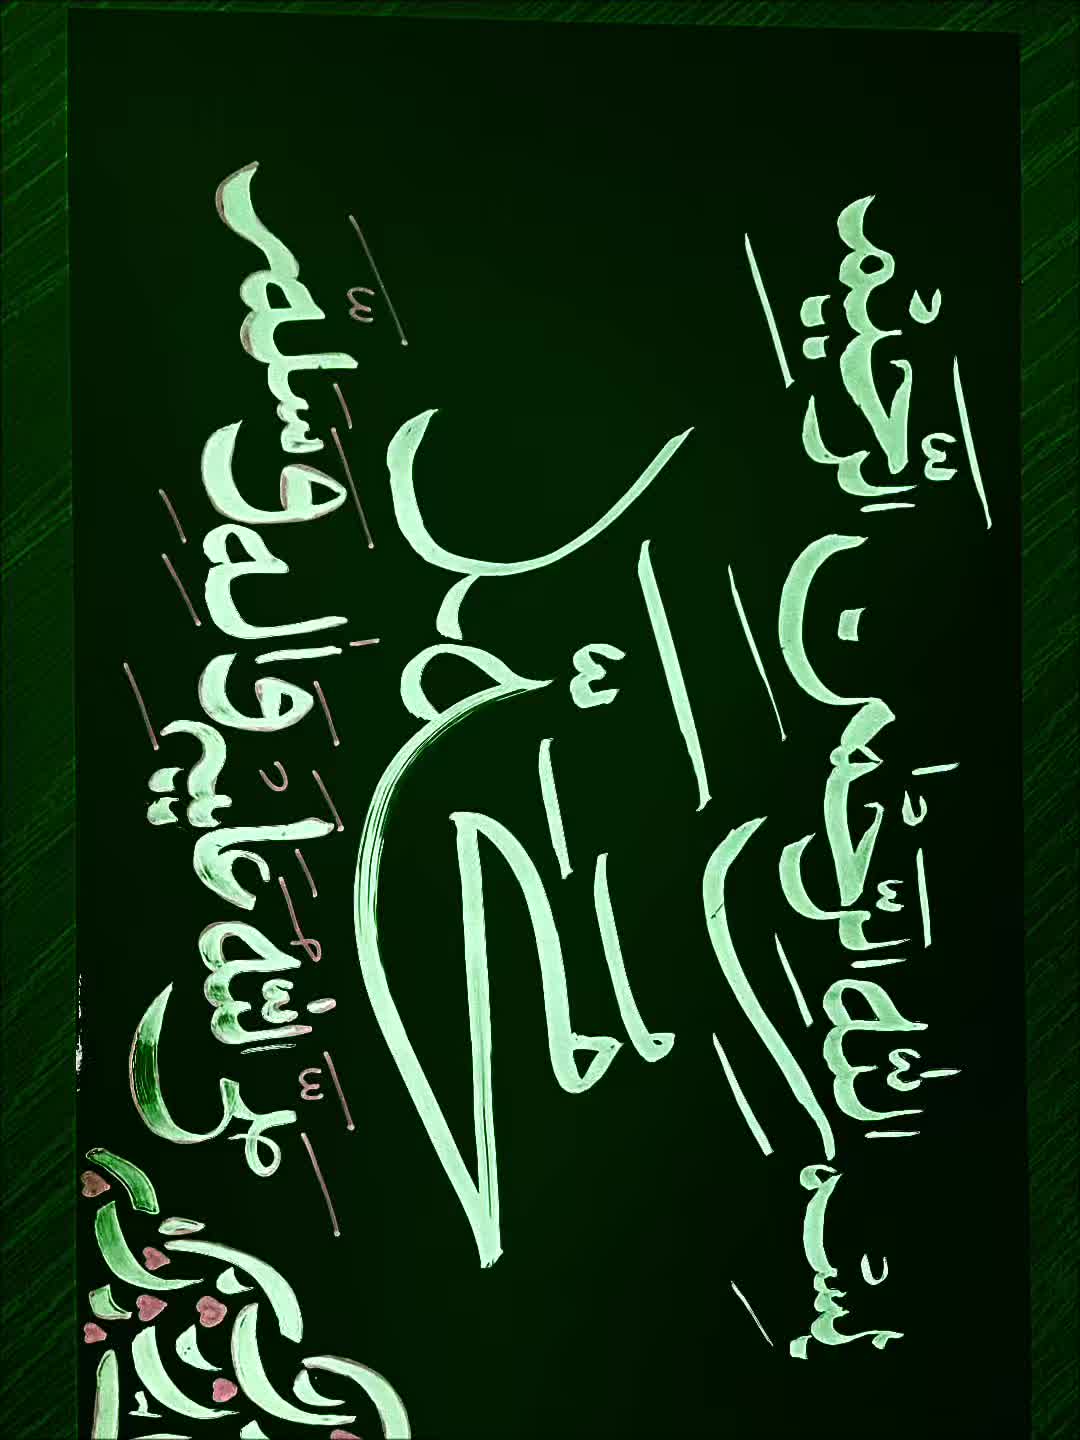 بِسْمِ اللّٰهِ الرَّحْمٰنِ الرَّحِيْمِ
مُحَمَّدٌ
صَلَّى اللّٰهُ عَلَيْهِ وَاٰلِهِ وَسَلَّمَ